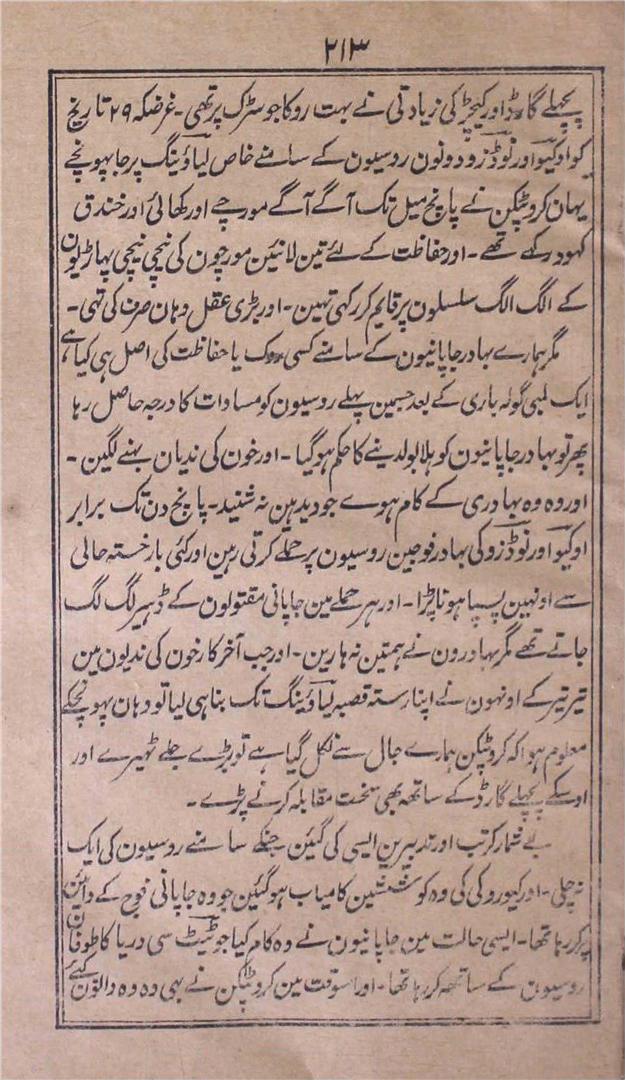 ۲۱۳
پچھلے گارڈ اور کیچڑ کی زیادتی نے بہت روکا جو سڑک پر تھی۔ غرضکہ ۲۹ تاریخ
کو اوکیو اور نوڈزو دونون روسیون کے سامنے خاص لیاؤینگ پر جا پہونچے
یہان کروپٹکن نے پانچ میل تک آگے آگے مورچے اور کھائی اور خندق
کھود رکھے تھے۔ اور حفاظت کے لئے تین لائنین مورچون کی نیچی نیچی پہاڑیون
کے الگ الگ سلسلون پر قایم کر رکھی تہین۔ اور بڑی عقل وہان صرف کی تہی۔
مگر ہمارے بہادر جاپانیون کے سامنے کسی روک یا حفاظت کی اصل ہی کیا ہے
ایک لمبی گولہ باری کے بعد جسمین پہلے روسیون کو مساوات کا درجہ حاصل رہا
پھر تو بہادر جاپانیون کو ہلا بولدینے کا حکم ہو گیا۔ اور خون کی ندیان بہنے لگین۔
اور وہ وہ بہادری کے کام ہوے جو دید ہین نہ شنید۔ پانچ دن تک برابر
اوکیو اور نوڈزو کی بہادر فوجین روسیون پر حملے کرتی رہین اور کئی بار خستہ حالی
سے اونہین پسپا ہونا پڑا۔ اور ہر حملے مین جاپانی مقتولون کے ڈہیر لگ لگ
جاتے تھے مگر بہادرون نے ہمتین نہ ہارین۔ اور جب آخر کار خون کی ندیون مین
تیر تیر کے اونہون نے اپنا رستہ قصبہ لیاؤینگ تک بنا ہی لیا تو وہان پہونچکے
معلوم ہوا کہ کروپٹکن ہمارے جال سے نکل گیا ہے تو بڑے جلے ٹھیرے اور
اوسکے پچھلے گارڈ کے ساتھ بھی سخت مقابلہ کرنے پڑے۔
بے شمار کرتب اور تدبیرین ایسی کی گئین جنکے سامنے روسیون کی ایک
نہ چلی۔ اور کیوروکی کی وہ کوششین کامیاب ہو گئین جو وہ جاپانی فوج کے دائین
پر کر رہا تھا۔ ایسی حالت مین جاپانیون نے وہ کام کیا جو ٹیٹ سی دریا کا طوفان
روسیون کے ساتھ کر رہا تھا۔ اور اسوقت مین کروپٹکن نے بہی وہ وہ دانون کیئے